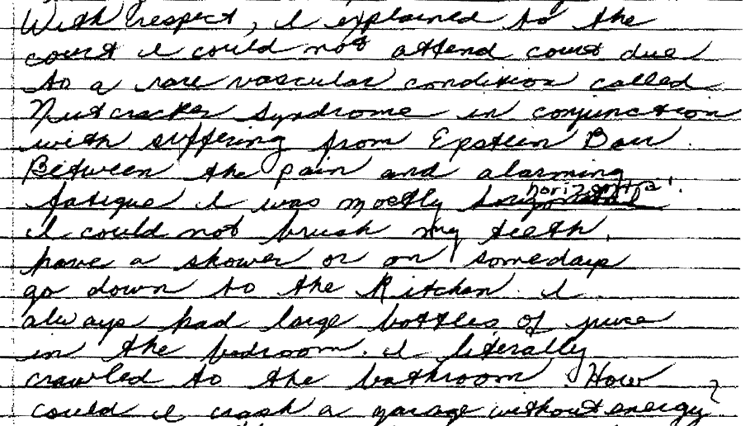 With respect, I explained to the
court I could not attend court due
to a rare vascular condition called
Nutcracker Syndrome in conjunction
with suffering from Epstein Barr.
Between the pain and alarming
fatigue I was mostly horizontal.
I could not brush my teeth,
have a shower or on somedays
go down to the kitchen. I
always had large bottles of juice
in the bedroom. I literally
crawled to the bathroom. How
could I crash a garage without energy?